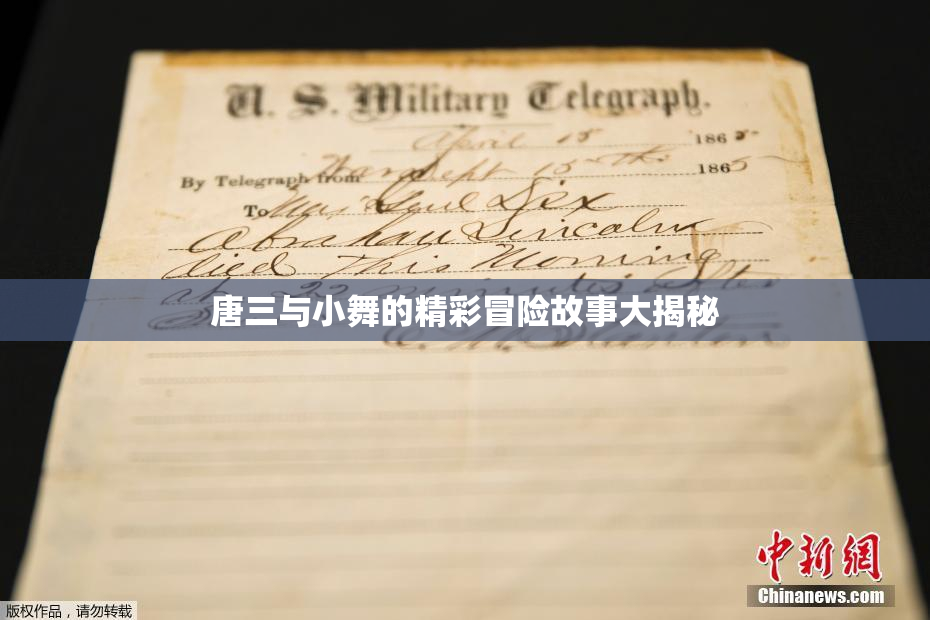 U. S. Military Telegraph.
April 15 1865
By Telegraph from War Dept 15th 1865
To Maj Genl Dix
Abraham Lincoln
died This Morning
at 22 minutes after
唐三与小舞的精彩冒险故事大揭秘
E. M. Stanton
中新網
Chinanews.com
版权作品,请勿转载